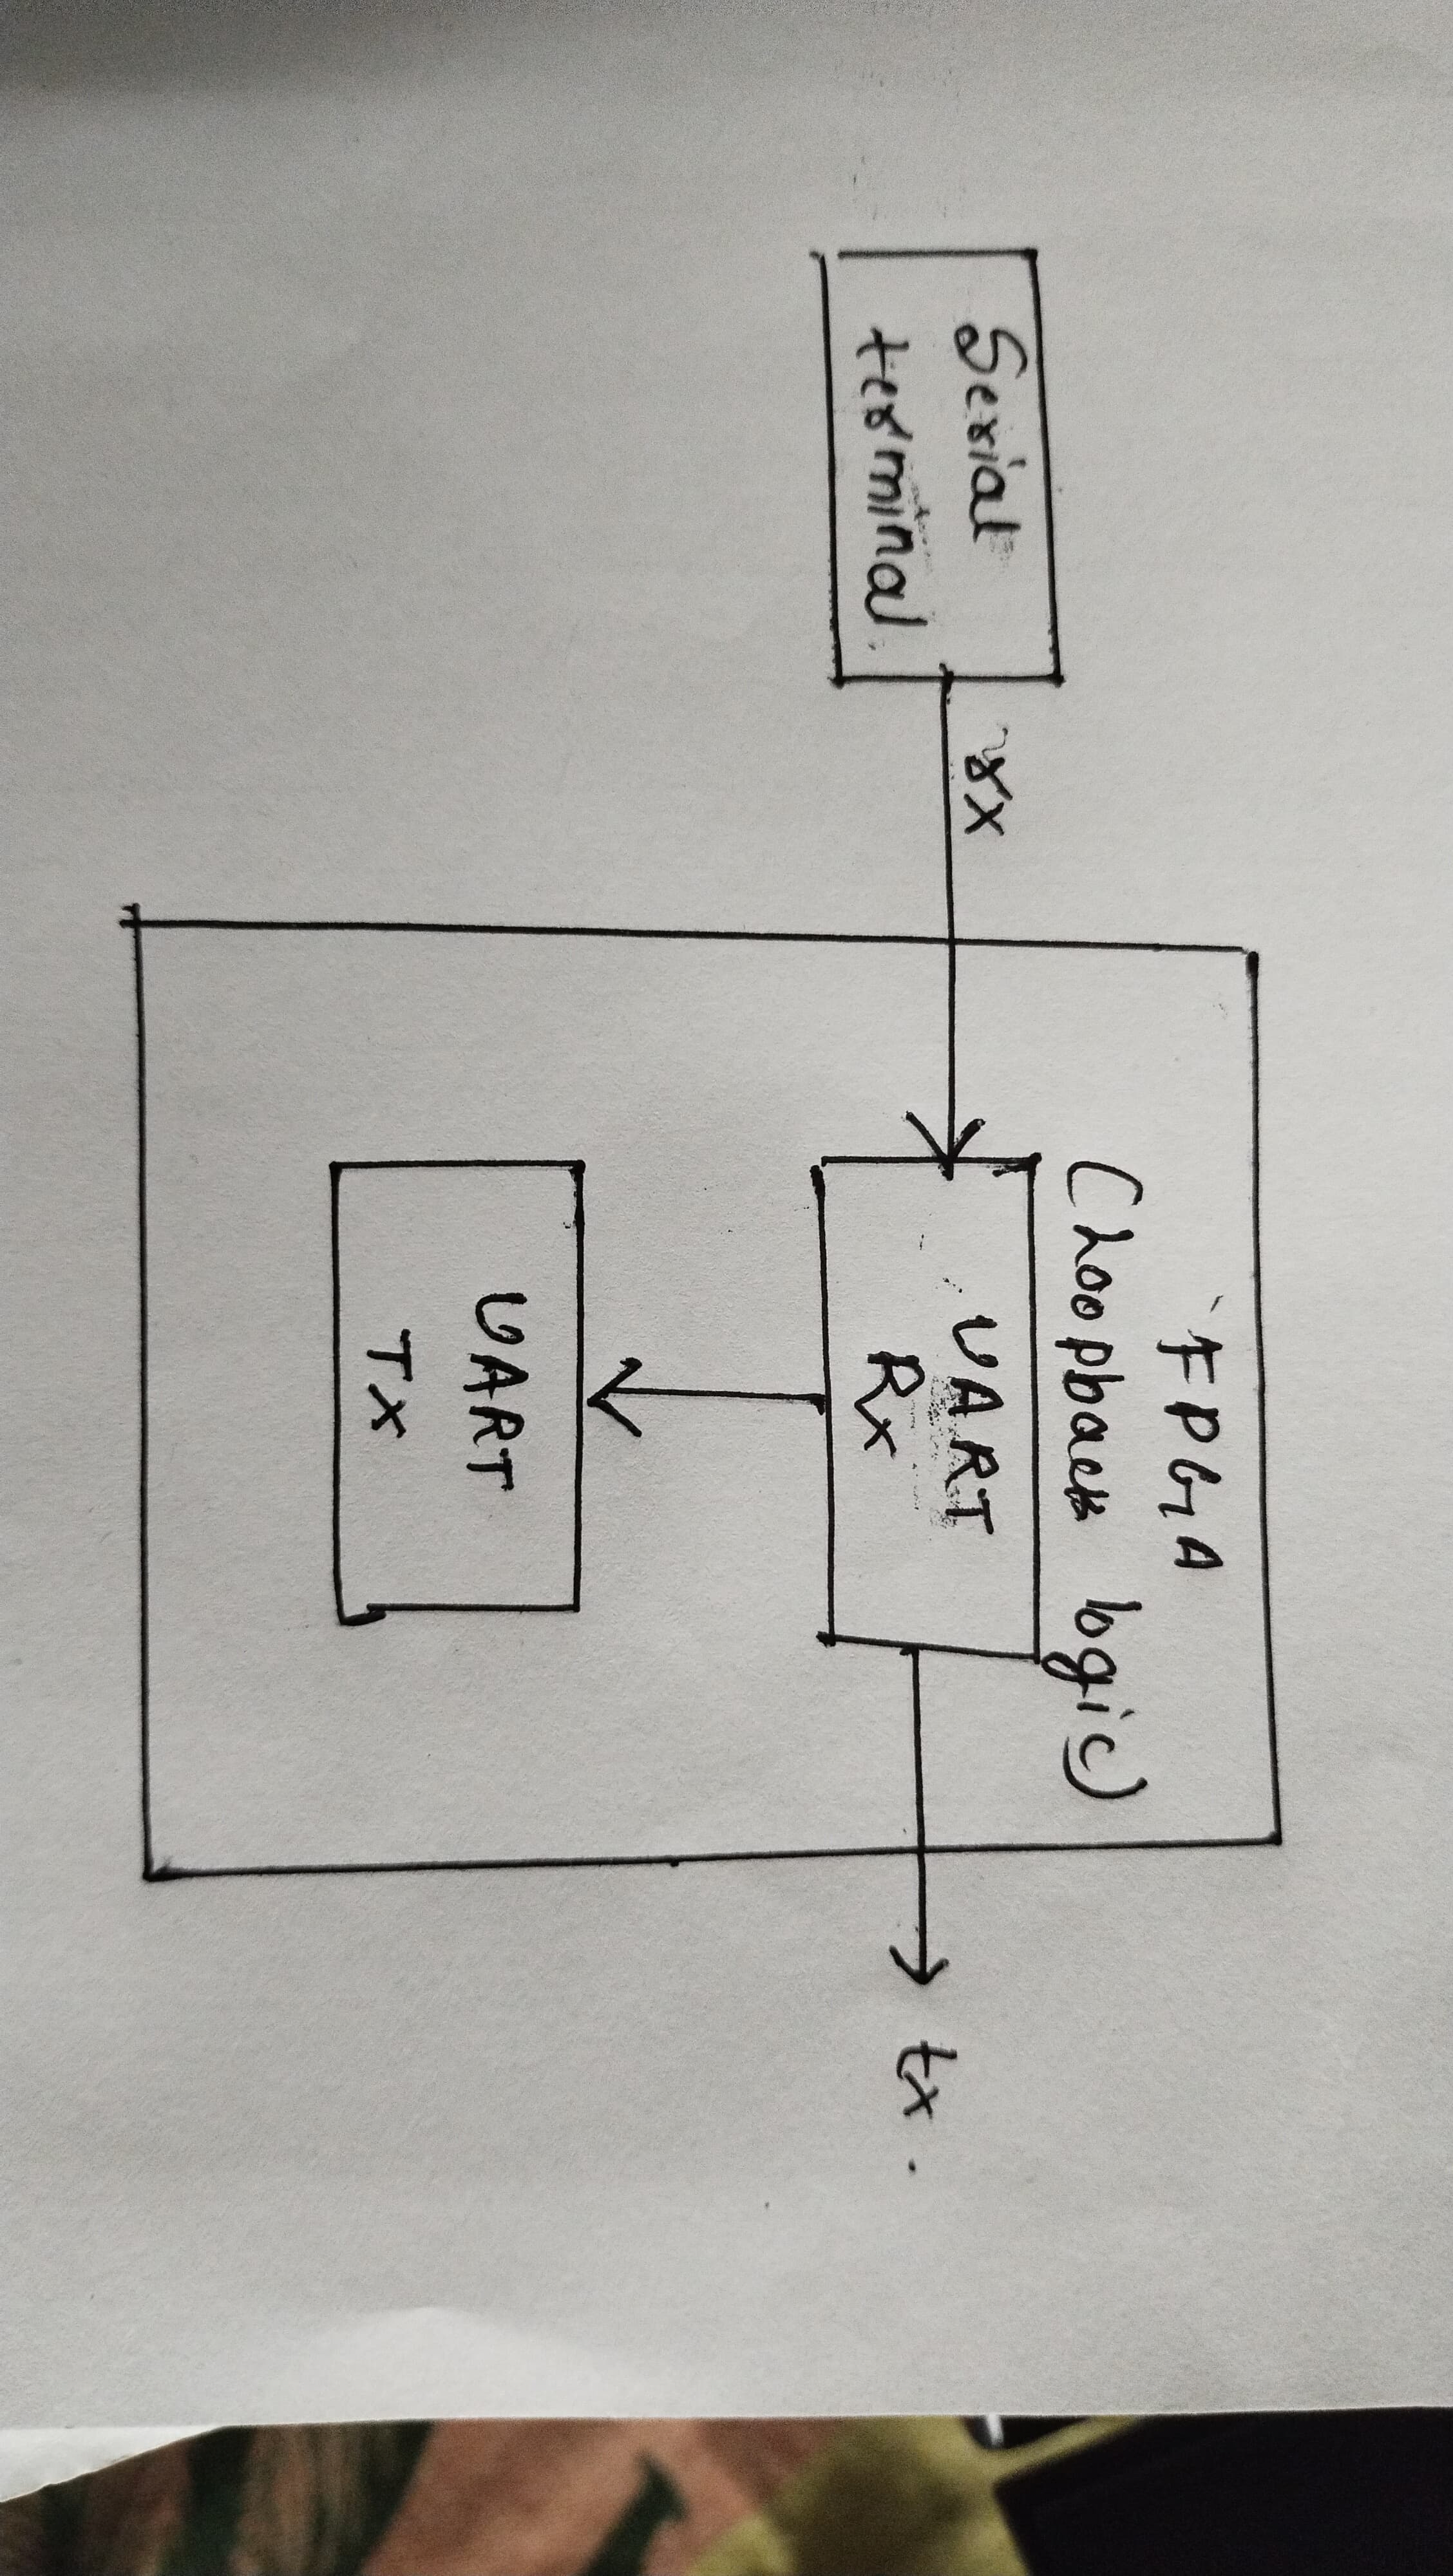 Serial
terminal
rx
FPGA
(Loopback logic)
UART
Rx
UART
Tx
tx.